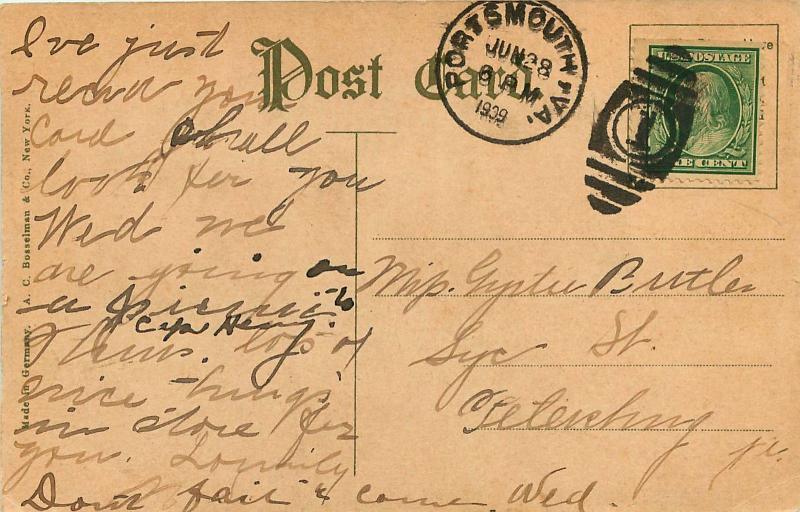 Post Card
PORTSMOUTH, VA.
JUN 28
6 PM
1909
U.S. POSTAGE
ONE CENT
1
Made in Germany. A. C. Bosselman & Co., New York.
I've just
read your
card shall
look for you
Wed we
are going on
a picnic to
Cape Henry
Thurs. lots of
nice things
in store for
you. Lovingly
Don't fail to come Wed.
Miss Butler
Syc St.
Petersburg